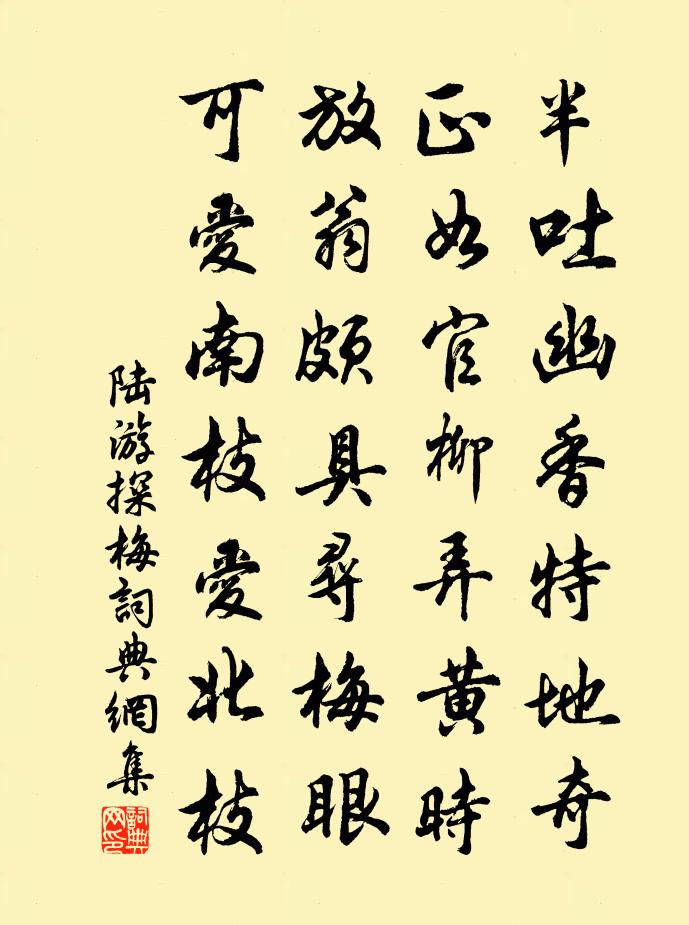 半吐幽香特地奇
正如官柳弄黄時
放翁頗具尋梅眼
可愛南枝愛北枝
陆游探梅詞典網集
詞典網印